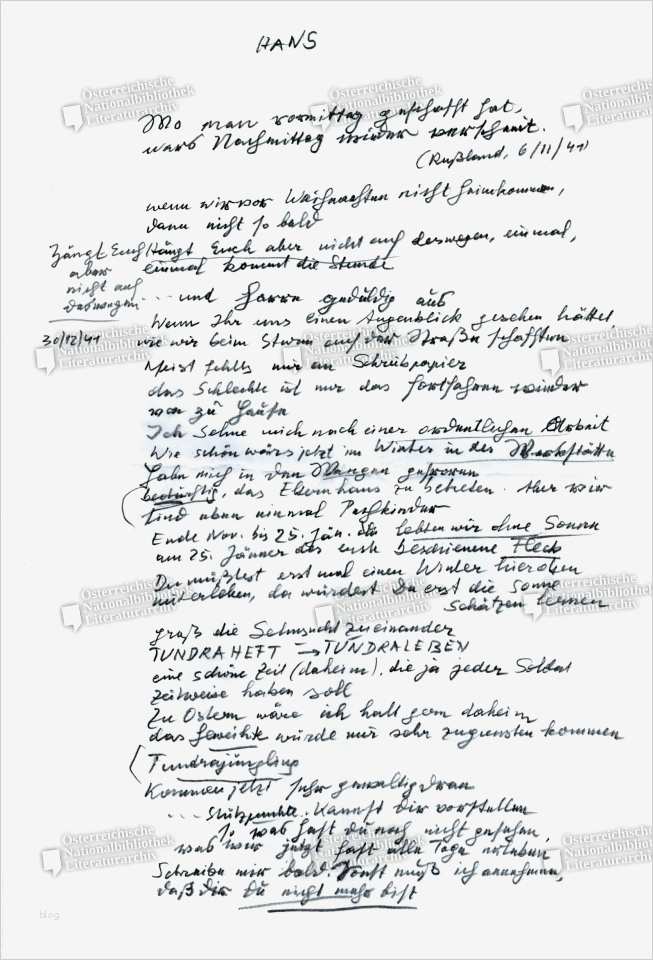 HANS
Wo man vormittag geschafft hat,
wars Nachmittag wieder verschneit.
(Rußland, 6/11/41)
wenn wir vor Weihnachten nicht heimkommen,
dann nicht so bald
Hängt Euch
aber
nicht auf
deswegen
30/12/41
Hängt Euch aber nicht auf deswegen, einmal,
einmal kommt die Stunde
... und harre geduldig aus
Wenn Ihr uns einen Augenblick gesehen hättet,
wie wir beim Sturm auf der Straße schafften
Meist fehlts mir an Schreibpapier
das Schlechte ist nur das Fortfahren wieder
von zu Hause
Ich sehne mich nach einer ordentlichen Arbeit
Wie schön wärs jetzt im Winter in der Werkstätte
habe mich in den gefroren
, das Elternhaus zu betreten. Aber wir
sind eben einmal Pechkinder
Ende Nov. bis 25. Jän. lebten wir ohne Sonne
am 25. Jänner das erste beschienene Fleck
Du müßtest erst mal einen Winter hieroben
miterleben, da würdest Du erst die Sonne
schätzen lernen
groß die Sehnsucht zueinander
TUNDRAHEFT → TUNDRALEBEN
eine schöne Zeit (daheim), die ja jeder Soldat
zeitweise haben soll
Zu Ostern wäre ich halt gern daheim
das Geweihte würde mir sehr zugunsten kommen
Tundrajüngling
Kommen jetzt sehr gewaltig dran
... Stützpunkte. Kannst Dir vorstellen
So was hast Du noch nicht gesehen,
was wir jetzt fast alle Tage erleben
Schreibe mir bald. Sonst muß ich annehmen,
daß Dir Du nicht mehr bist
Österreichische
Nationalbibliothek
Literaturarchiv
blog